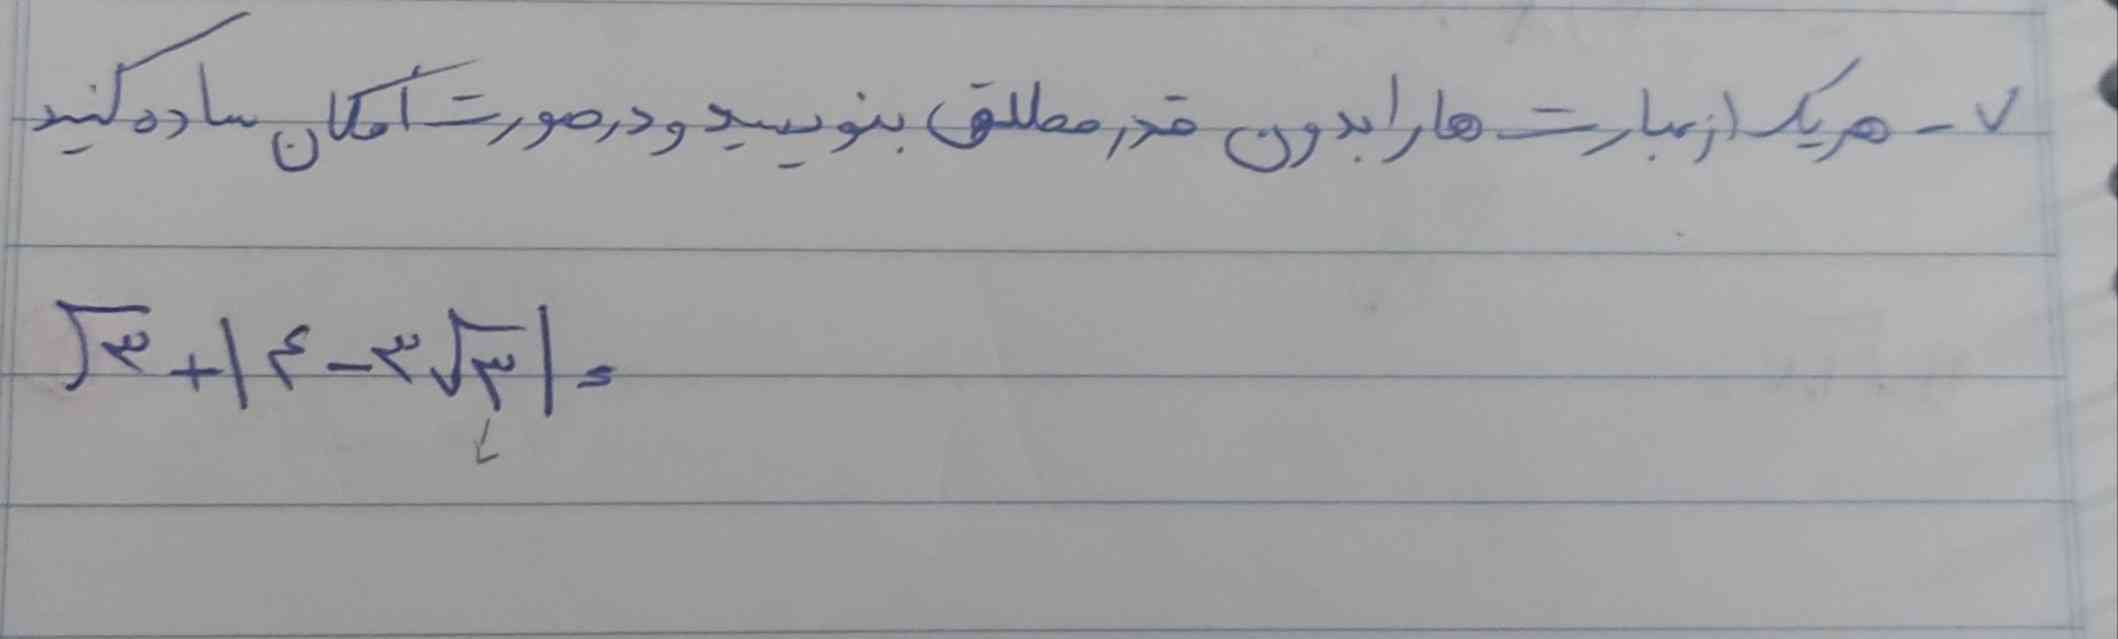 ۷- هریک از عبارت ها را بدون قدر مطلق بنویسید و در صورت امکان ساده کنید
√۳ + |۴ - ۳√۳| =